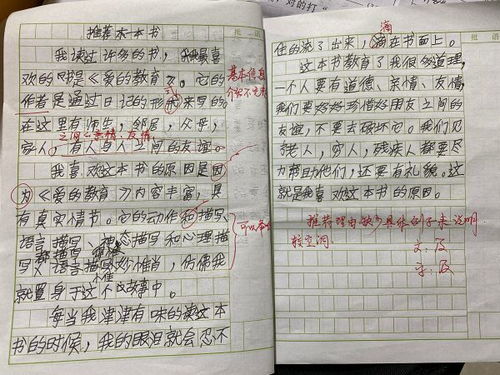 推荐一本书
我读过许多的书,我最喜
欢的书是《爱的教育》。它的
作者是通过日记的形式来写的
在这里有师生,邻居,父母,
之间的亲情、友情
家人,有人与人之间的友谊。
我喜欢这本书的原因是因
为《爱的教育》内容丰富,具
有真实情节。它的动作和描写
语言描写、神态描写和心理描
写、语言描写妙惟肖,仿佛我
就置身于这个故事中。
每当我津津有味的读这本
书的时候,我的眼泪就会忍不
基本信息
可以
滴
住的流了出来,滴在书面上。
这本书教育了我很多道理,
一个人要有道德、亲情、友情,
我们要好好珍惜好朋友之间的
友谊,不要去破坏它。我们见
老人,穷人,残疾人都要尽
力帮助他们,还要有礼貌。这
就是我喜欢这本书的原因。
推荐理由缺少具体例子来说明
较空洞。
文:及
字:及